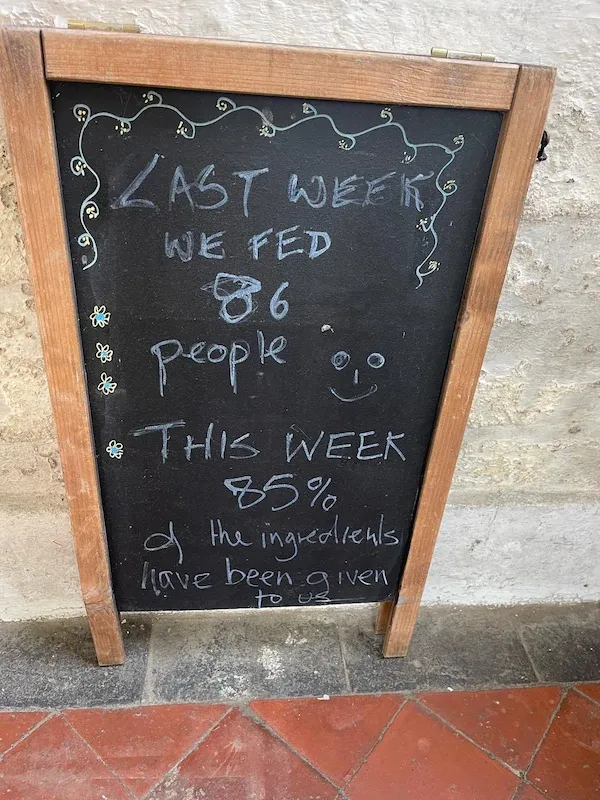 LAST WEEK
WE FED
86
people
THIS WEEK
85%
of the ingredients
have been given
to us